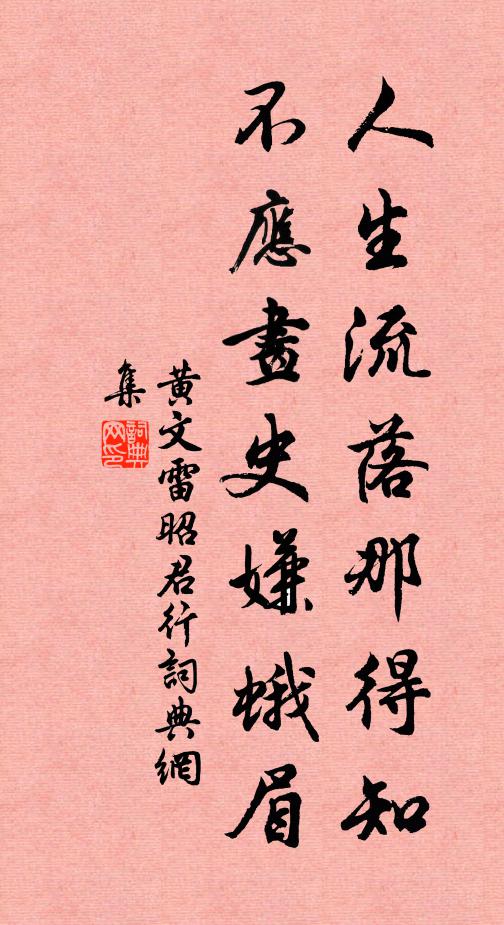 人生流落那得知
不應畫史嫌蛾眉
黃文雷昭君行詞典網
集
詞典网印